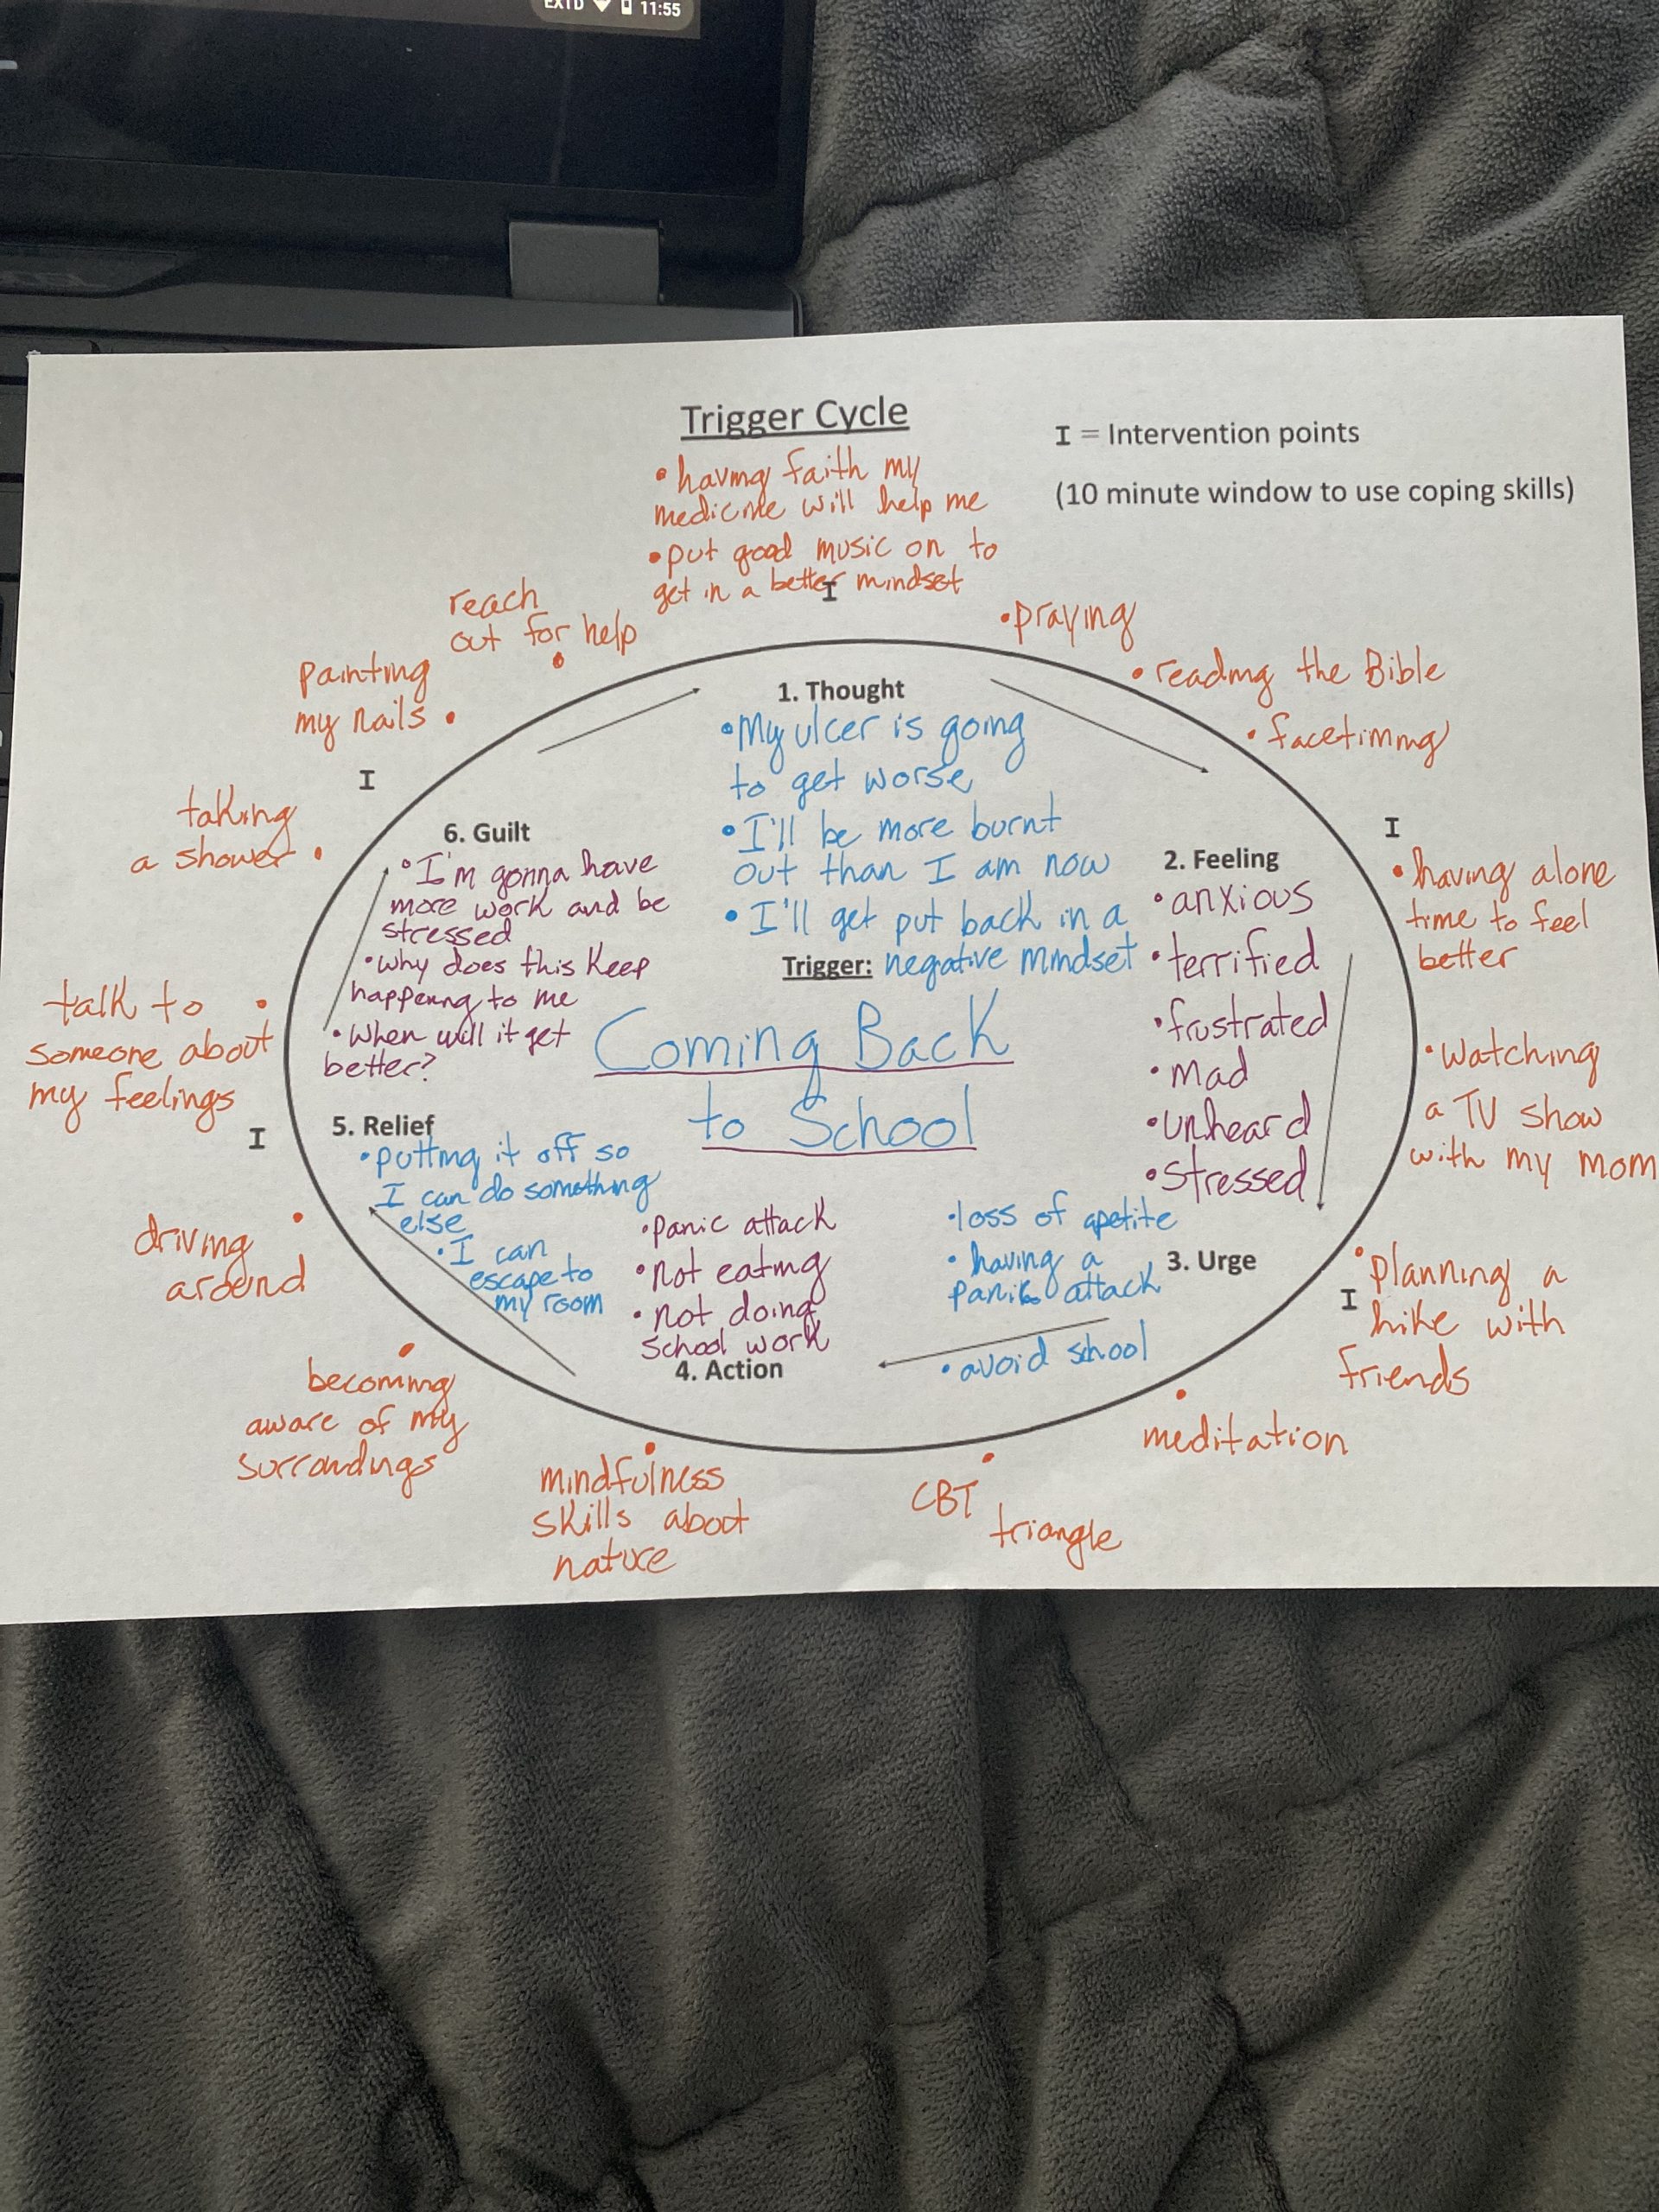 EXTD 11:55
Trigger Cycle
I = Intervention points
(10 minute window to use coping skills)
• having faith my
medicine will help me
• put good music on to
get in a better mindset
I
• praying
• reading the Bible
• facetiming
I
• having alone
time to feel
better
• Watching
a TV show
with my mom
• planning a
I
hike with
friends
• meditation
• CBT
triangle
• mindfulness
skills about
nature
• becoming
aware of my
surroundings
• driving
around
I
• talk to
someone about
my feelings
taking
a shower •
I
painting
my nails •
reach
out for help
•
1. Thought
• My ulcer is going
to get worse
• I'll be more burnt
out than I am now
• I'll get put back in a
negative mindset
Trigger:
Coming Back
to School
2. Feeling
• anxious
• terrified
• frustrated
• mad
• unheard
• stressed
3. Urge
• loss of apetite
• having a
panic attack
• avoid school
• panic attack
• not eating
• not doing
school work
4. Action
5. Relief
• putting it off so
I can do something
else
• I can
escape to
my room
6. Guilt
• I'm gonna have
more work and be
stressed
• why does this keep
happening to me
• When will it get
better?